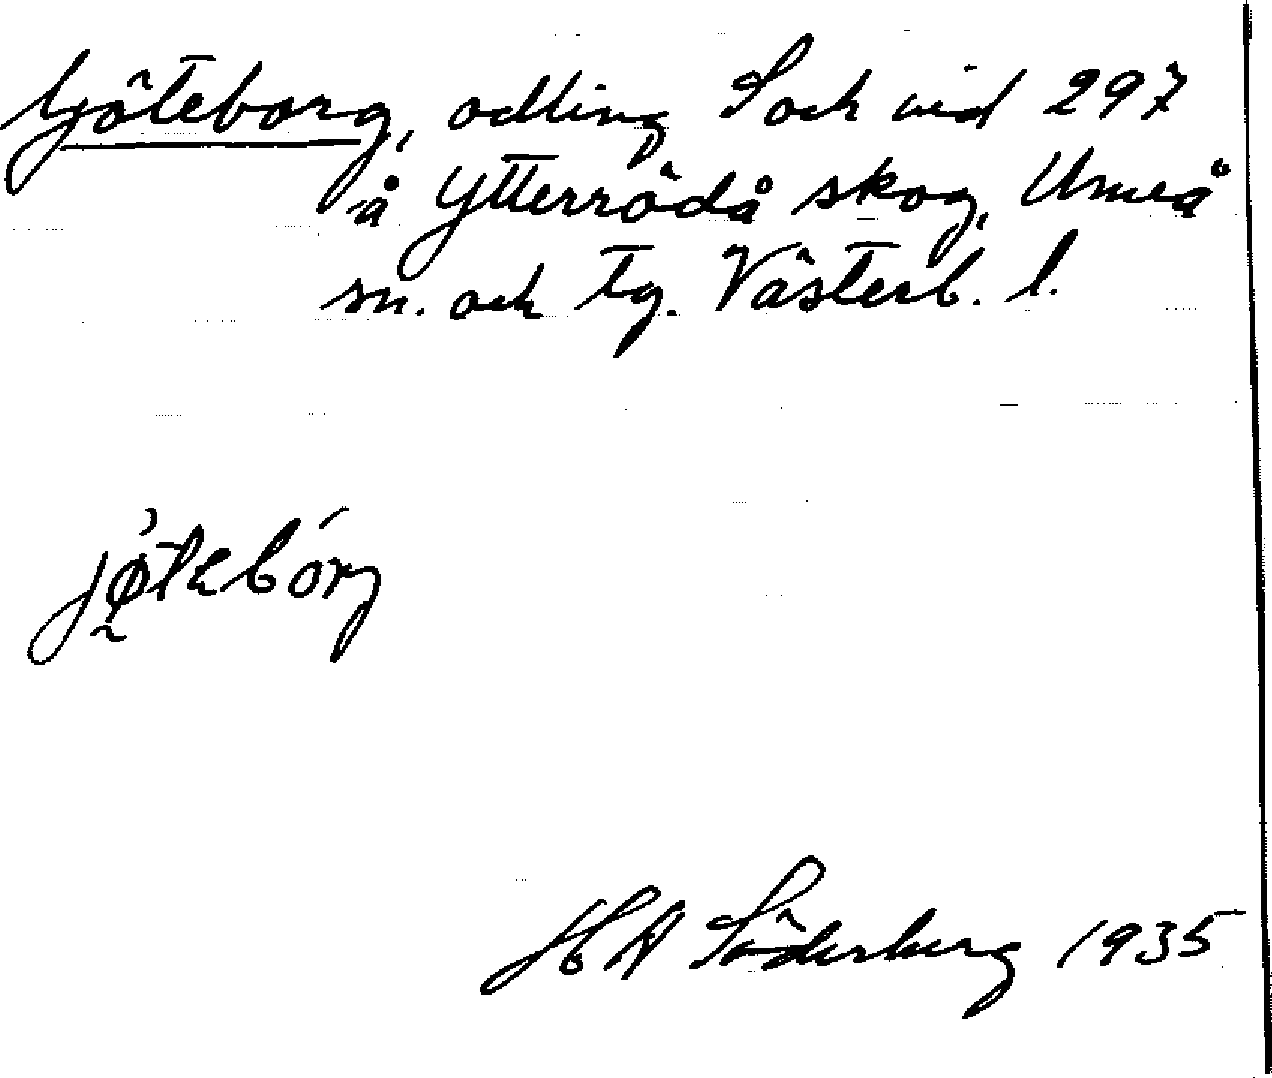 Göteborg, odling S och vid 297
å Ytterrödå skog, Umeå
sn. och tg. Västerb. l.
HA Söderberg 1935